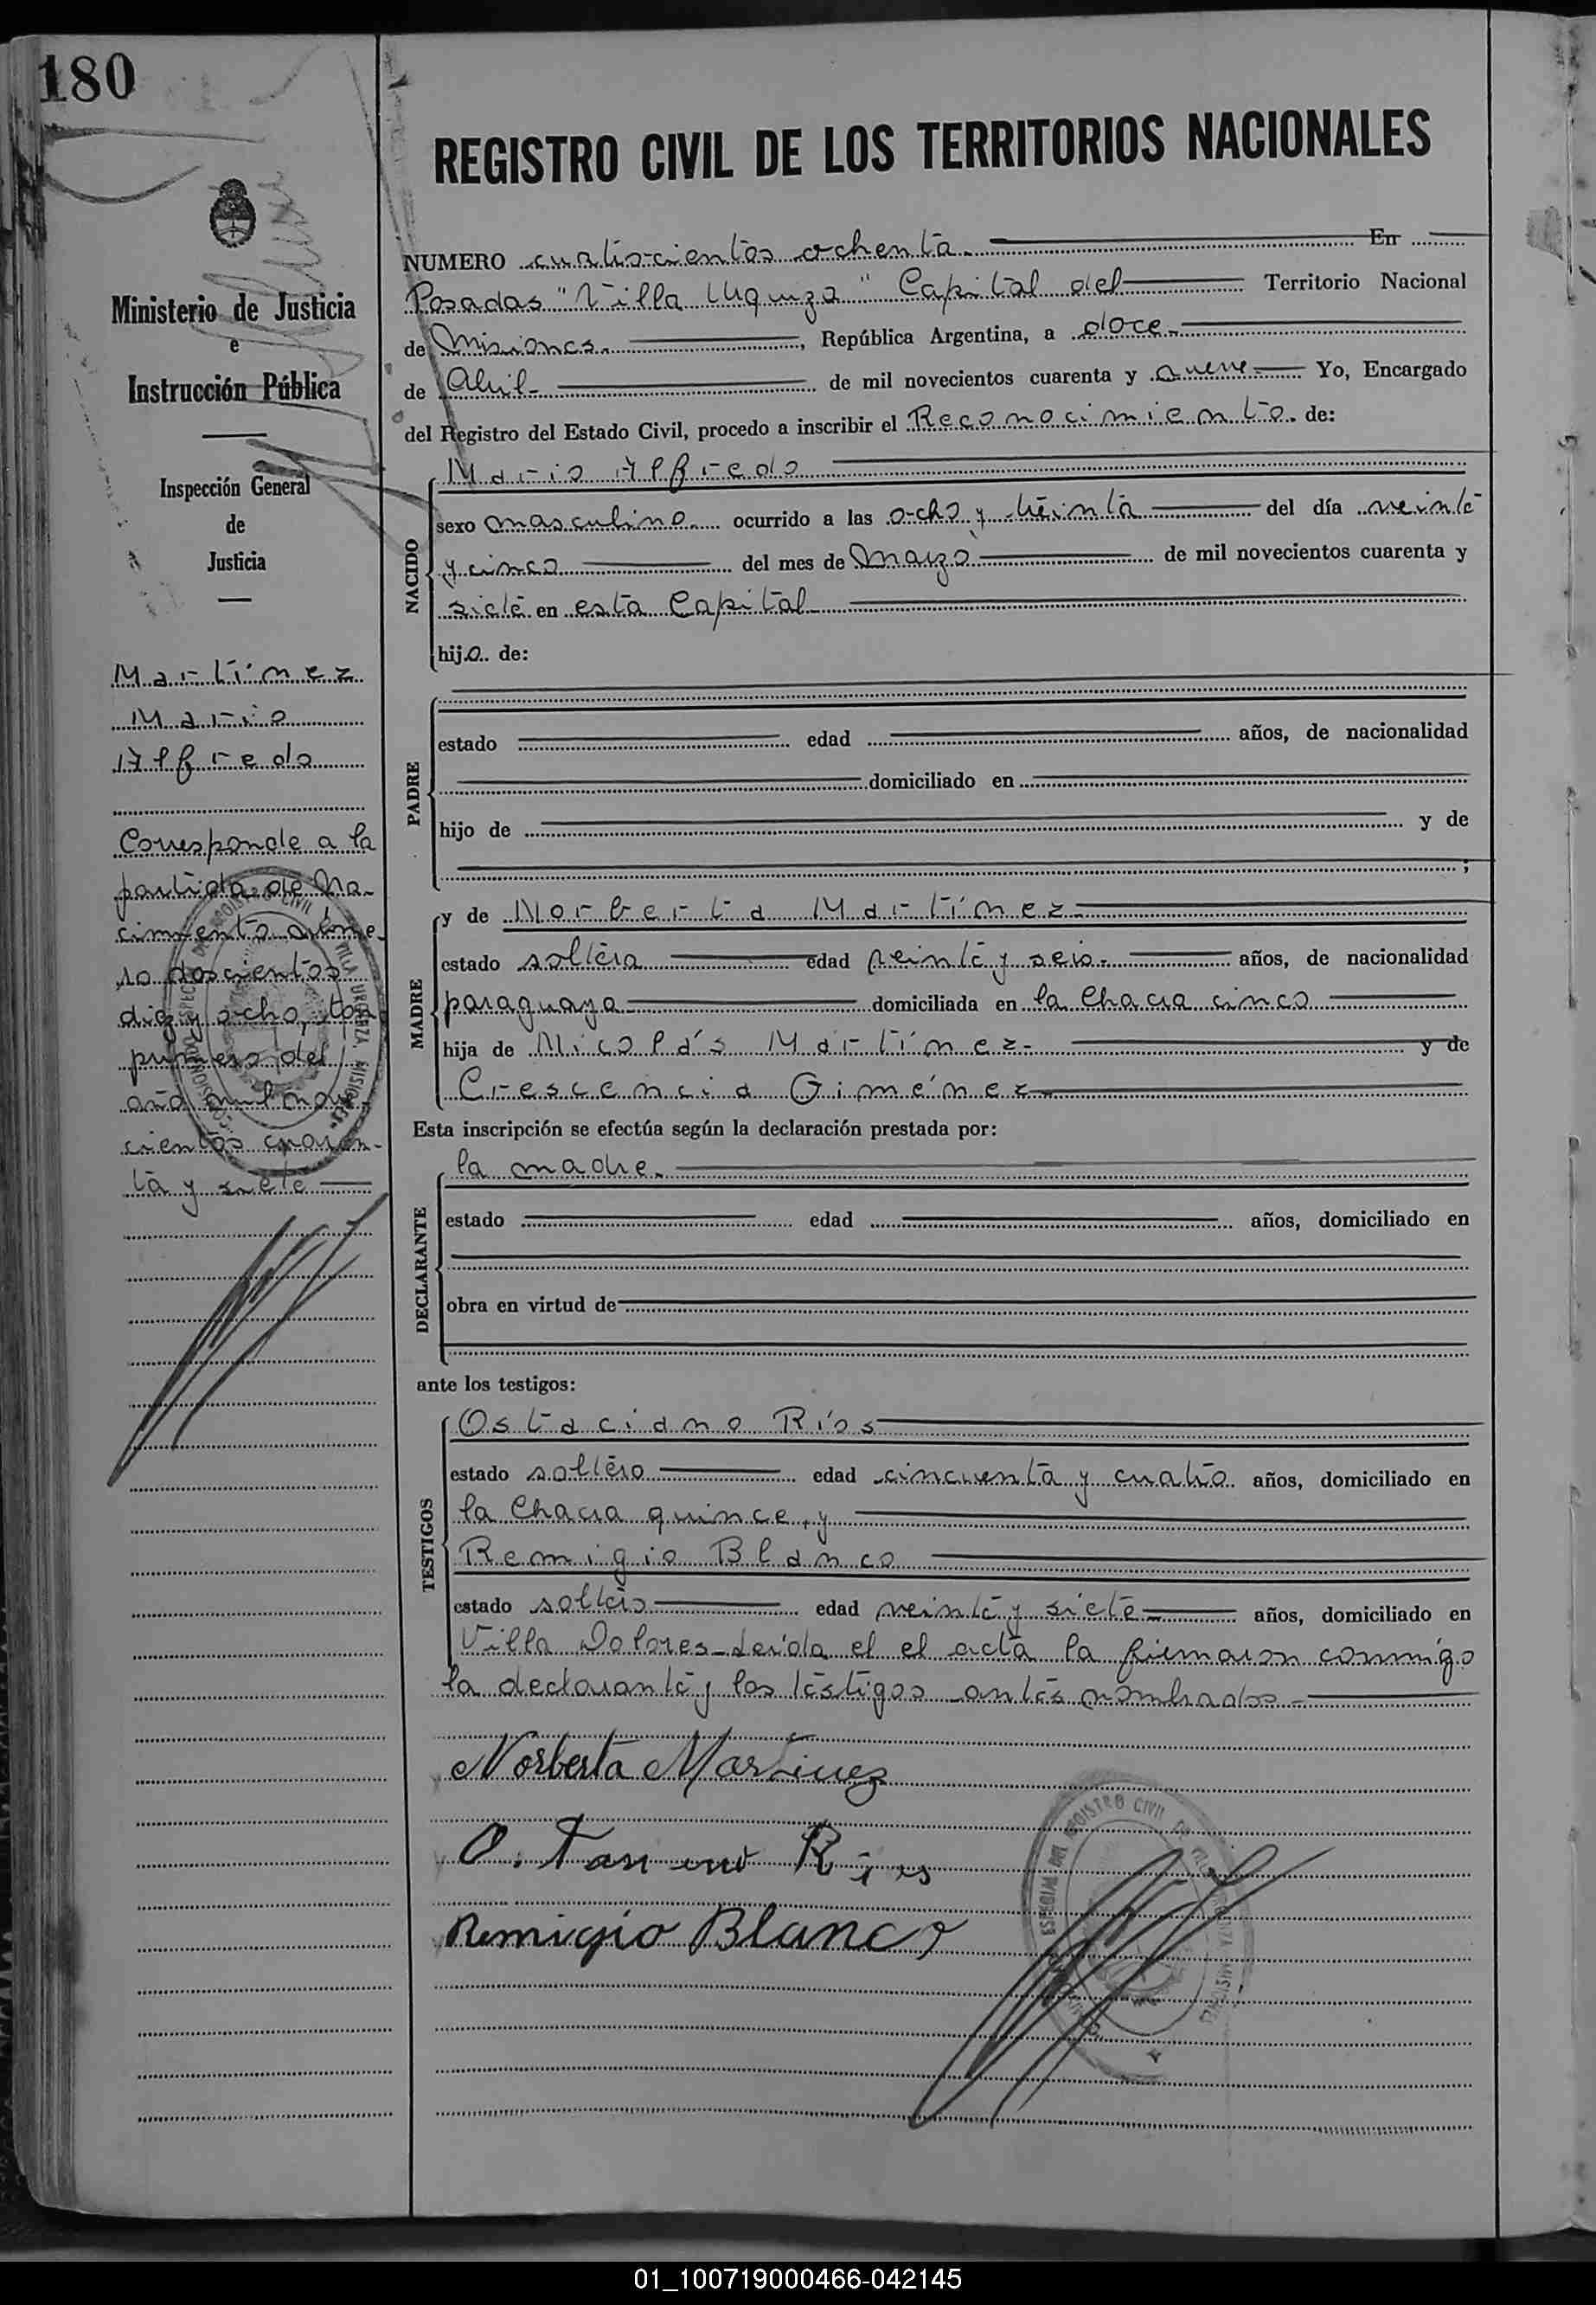 180
REGISTRO CIVIL DE LOS TERRITORIOS NACIONALES
NUMERO cuatrocientos ochenta. En
Posadas "Villa Urquiza" Capital del Territorio Nacional
de Misiones. , República Argentina, a doce
de Abril de mil novecientos cuarenta y nueve Yo, Encargado
del Registro del Estado Civil, procedo a inscribir el Reconocimiento de:
NACIDO
Mario Alfredo
sexo masculino ocurrido a las ocho y treinta del día veinte
y cinco del mes de Marzo de mil novecientos cuarenta y
siete en esta Capital
hijo de:
PADRE
estado edad años, de nacionalidad
domiciliado en
hijo de y de
;
MADRE
y de Norberta Martínez
estado soltera edad veinte y seis. años, de nacionalidad
paraguaya domiciliada en la Chacra cinco
hija de Nicolás Martínez y de
Crescencia Giménez
Esta inscripción se efectúa según la declaración prestada por:
DECLARANTE
la madre.
estado edad años, domiciliado en
obra en virtud de
ante los testigos:
TESTIGOS
Ostaciano Ríos
estado soltero edad cincuenta y cuatro años, domiciliado en
la Chacra quince, y
Remigio Blanco
estado soltero edad veinte y siete años, domiciliado en
Villa Dolores-Leída el el acta la firmaron conmigo
la declarante y los testigos antes nombrados
Norberta Martinez
O. Ríos
Remigio Blanco
Ministerio de Justicia
e
Instrucción Pública
Inspección General
de
Justicia
Martínez
Mario
Alfredo
Corresponde a la
partida de Na-
cimiento núme-
ro doscientos
diez y ocho, tomo
primero del
año mil nove-
cientos cuaren-
ta y siete
REGISTRO CIVIL
VILLA URQUIZA MISIONES
ESPECIAL DEL REGISTRO CIVIL DE VILLA URQUIZA MISIONES
01_100719000466-042145